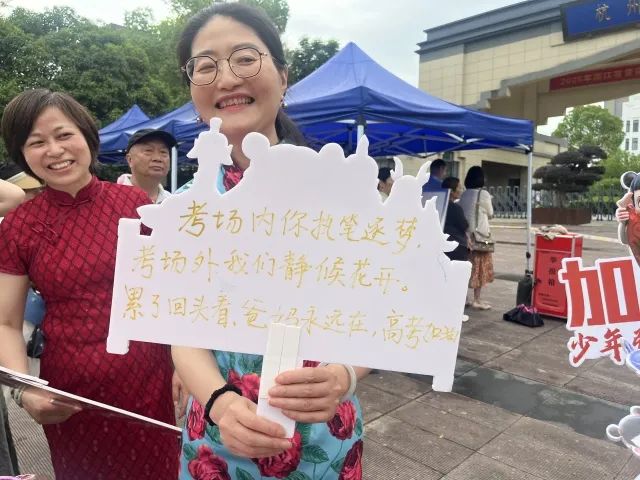 考场内你执笔逐梦，
考场外我们静候花开。
累了回头看，爸妈永远在，高考加油
杭州
举报箱
加
少年